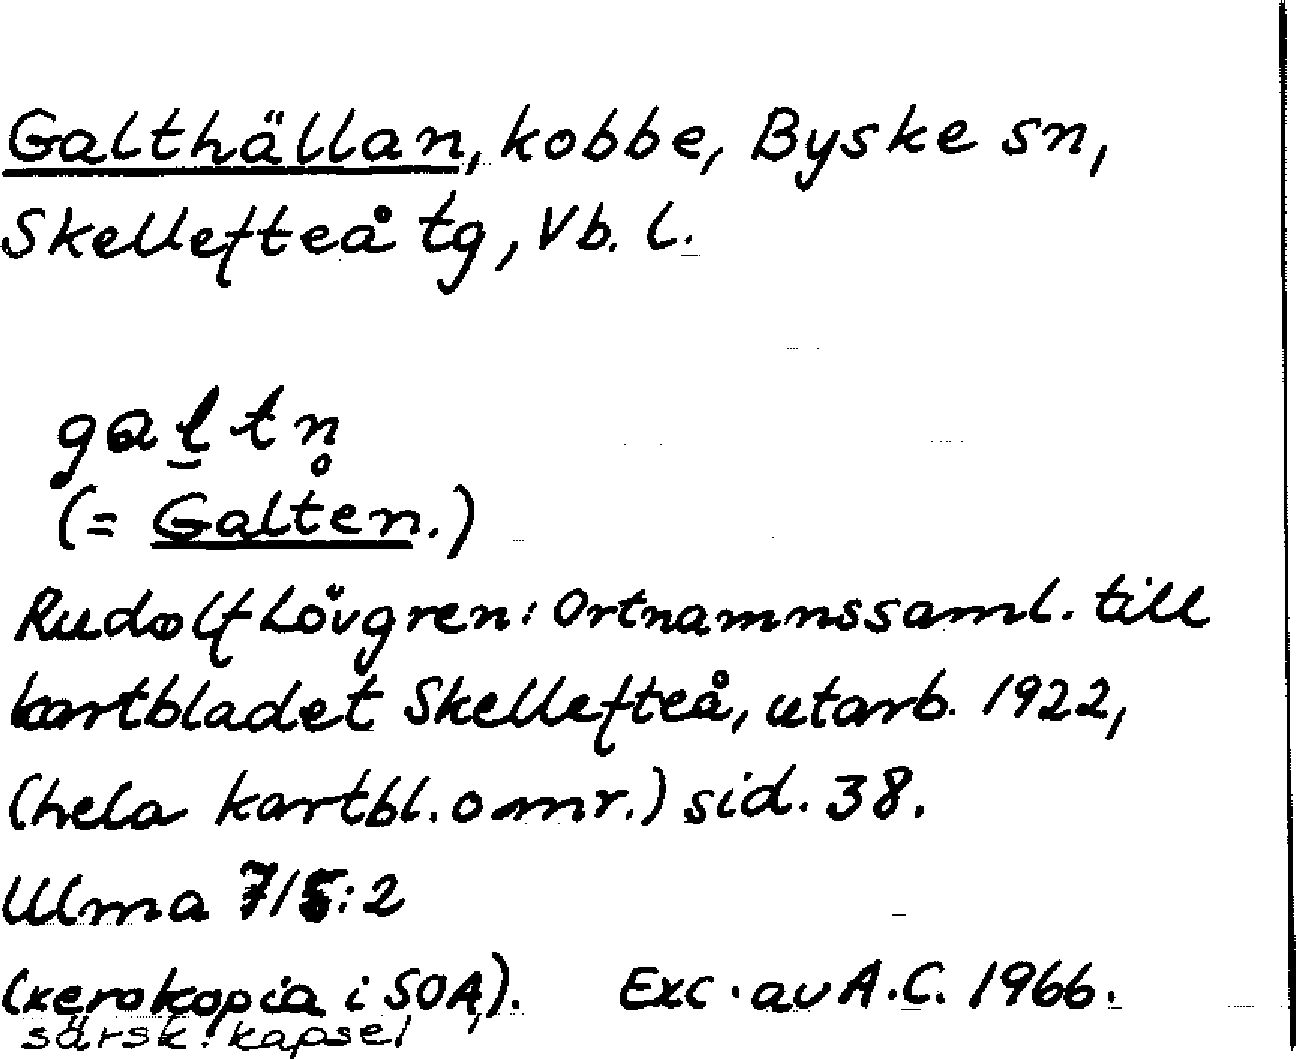 Galthällan, kobbe, Byske sn,
Skellefteå tg, Vb. l.
ga̱ltn̥
(= Galten.)
Rudolf Lövgren: Ortnamnssaml. till
kartbladet Skellefteå, utarb. 1922,
(hela kartbl. omr.) sid. 38.
Ulma 715:2
(xerokopia i SOA,).   Exc. av A.C. 1966.
särsk. kapsel